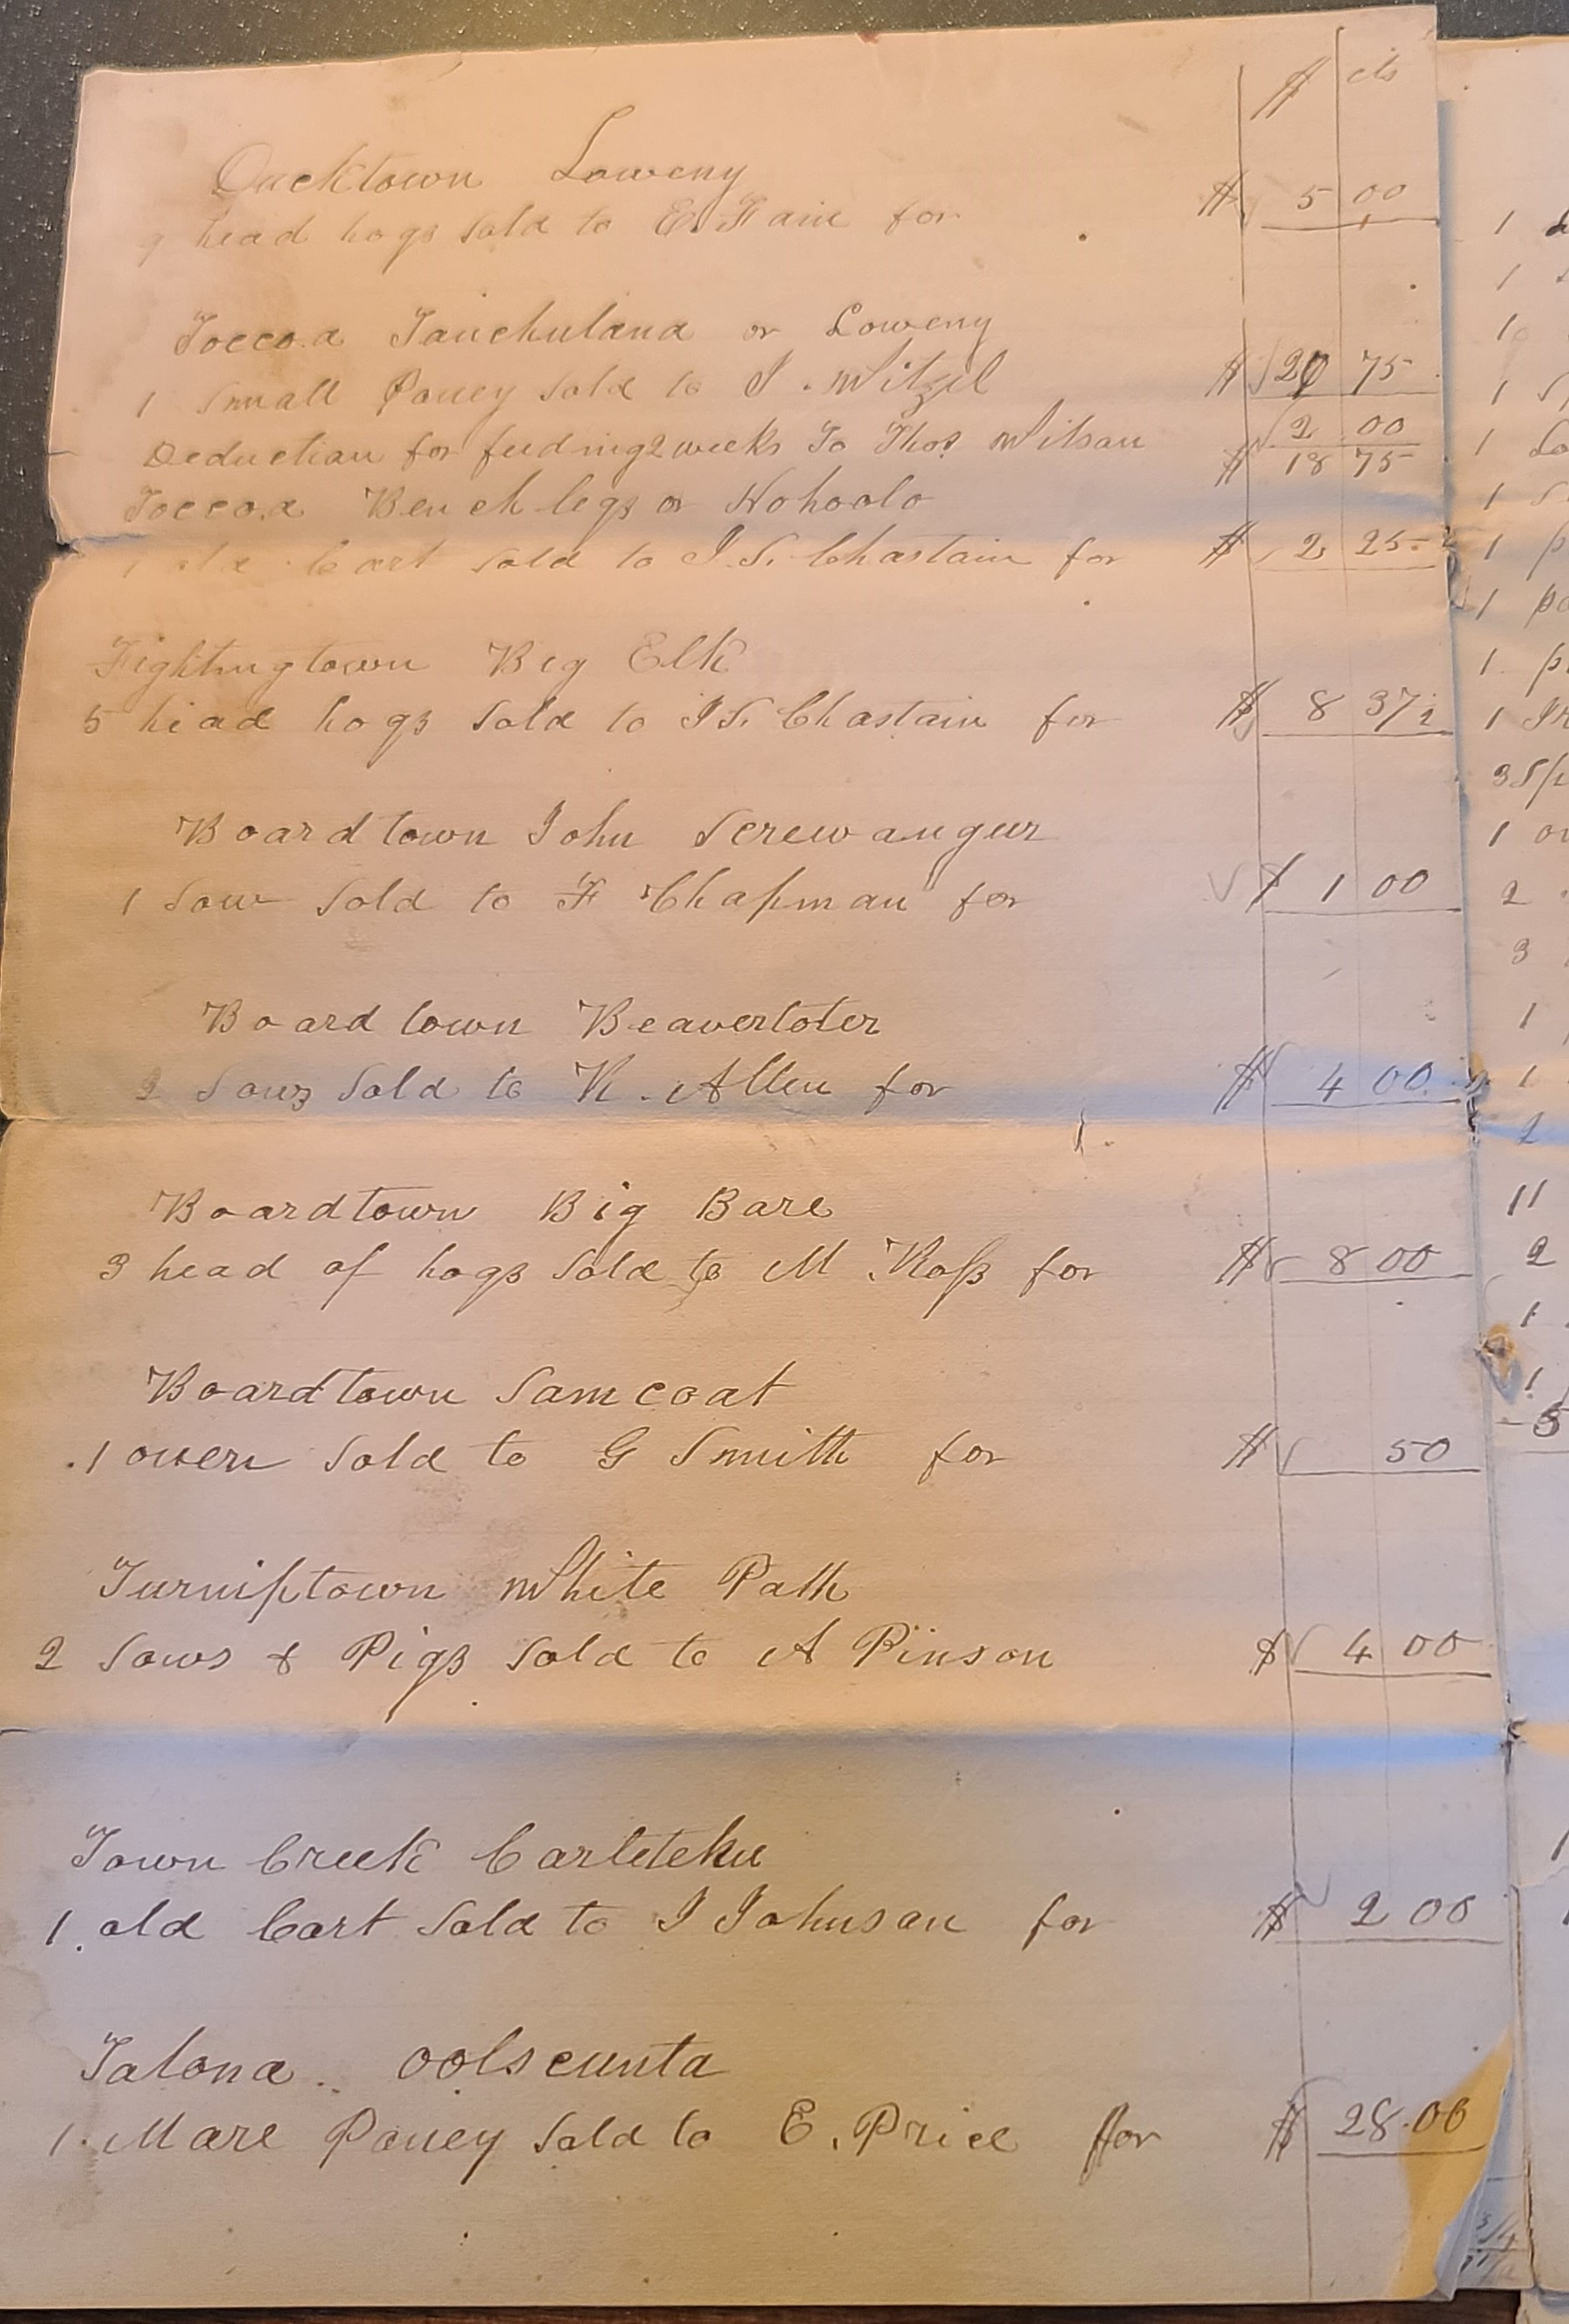 $ cts
Ducktown Loweny
9 head hogs sold to E. Fain for $ 5 00
Toccoa Tauchulana or Loweny
1 Small Poney sold to J. Witzel $ 20 75
Deduction for feeding 2 weeks To Thos Wilson 2 00
$ 18 75
Toccoa Bench legs or Nohoolo
Cart sold to J. S. Chastain for $ 2 25
Fightingtown Big Elk
5 head hogs sold to J S. Chastain for $ 8 37½
Boardtown John Screwangur
1 Sow sold to F Chapman for $ 1 00
Boardtown Beavertoter
2 Sows Sold to K. Allen for $ 4 00
Boardtown Big Bare
3 head of hogs sold to M Ross for $ 8 00
Boardtown Samcoat
1 oven sold to G Smith for $ 50
Turniptown White Path
2 Sows & Pigs sold to A Pinson $ 4 00
Town Creek Carleteku
1 old Cart sold to J Johnson for $ 2 00
Talona oolscunta
1 Mare Poney sold to E. Price for $ 28.00